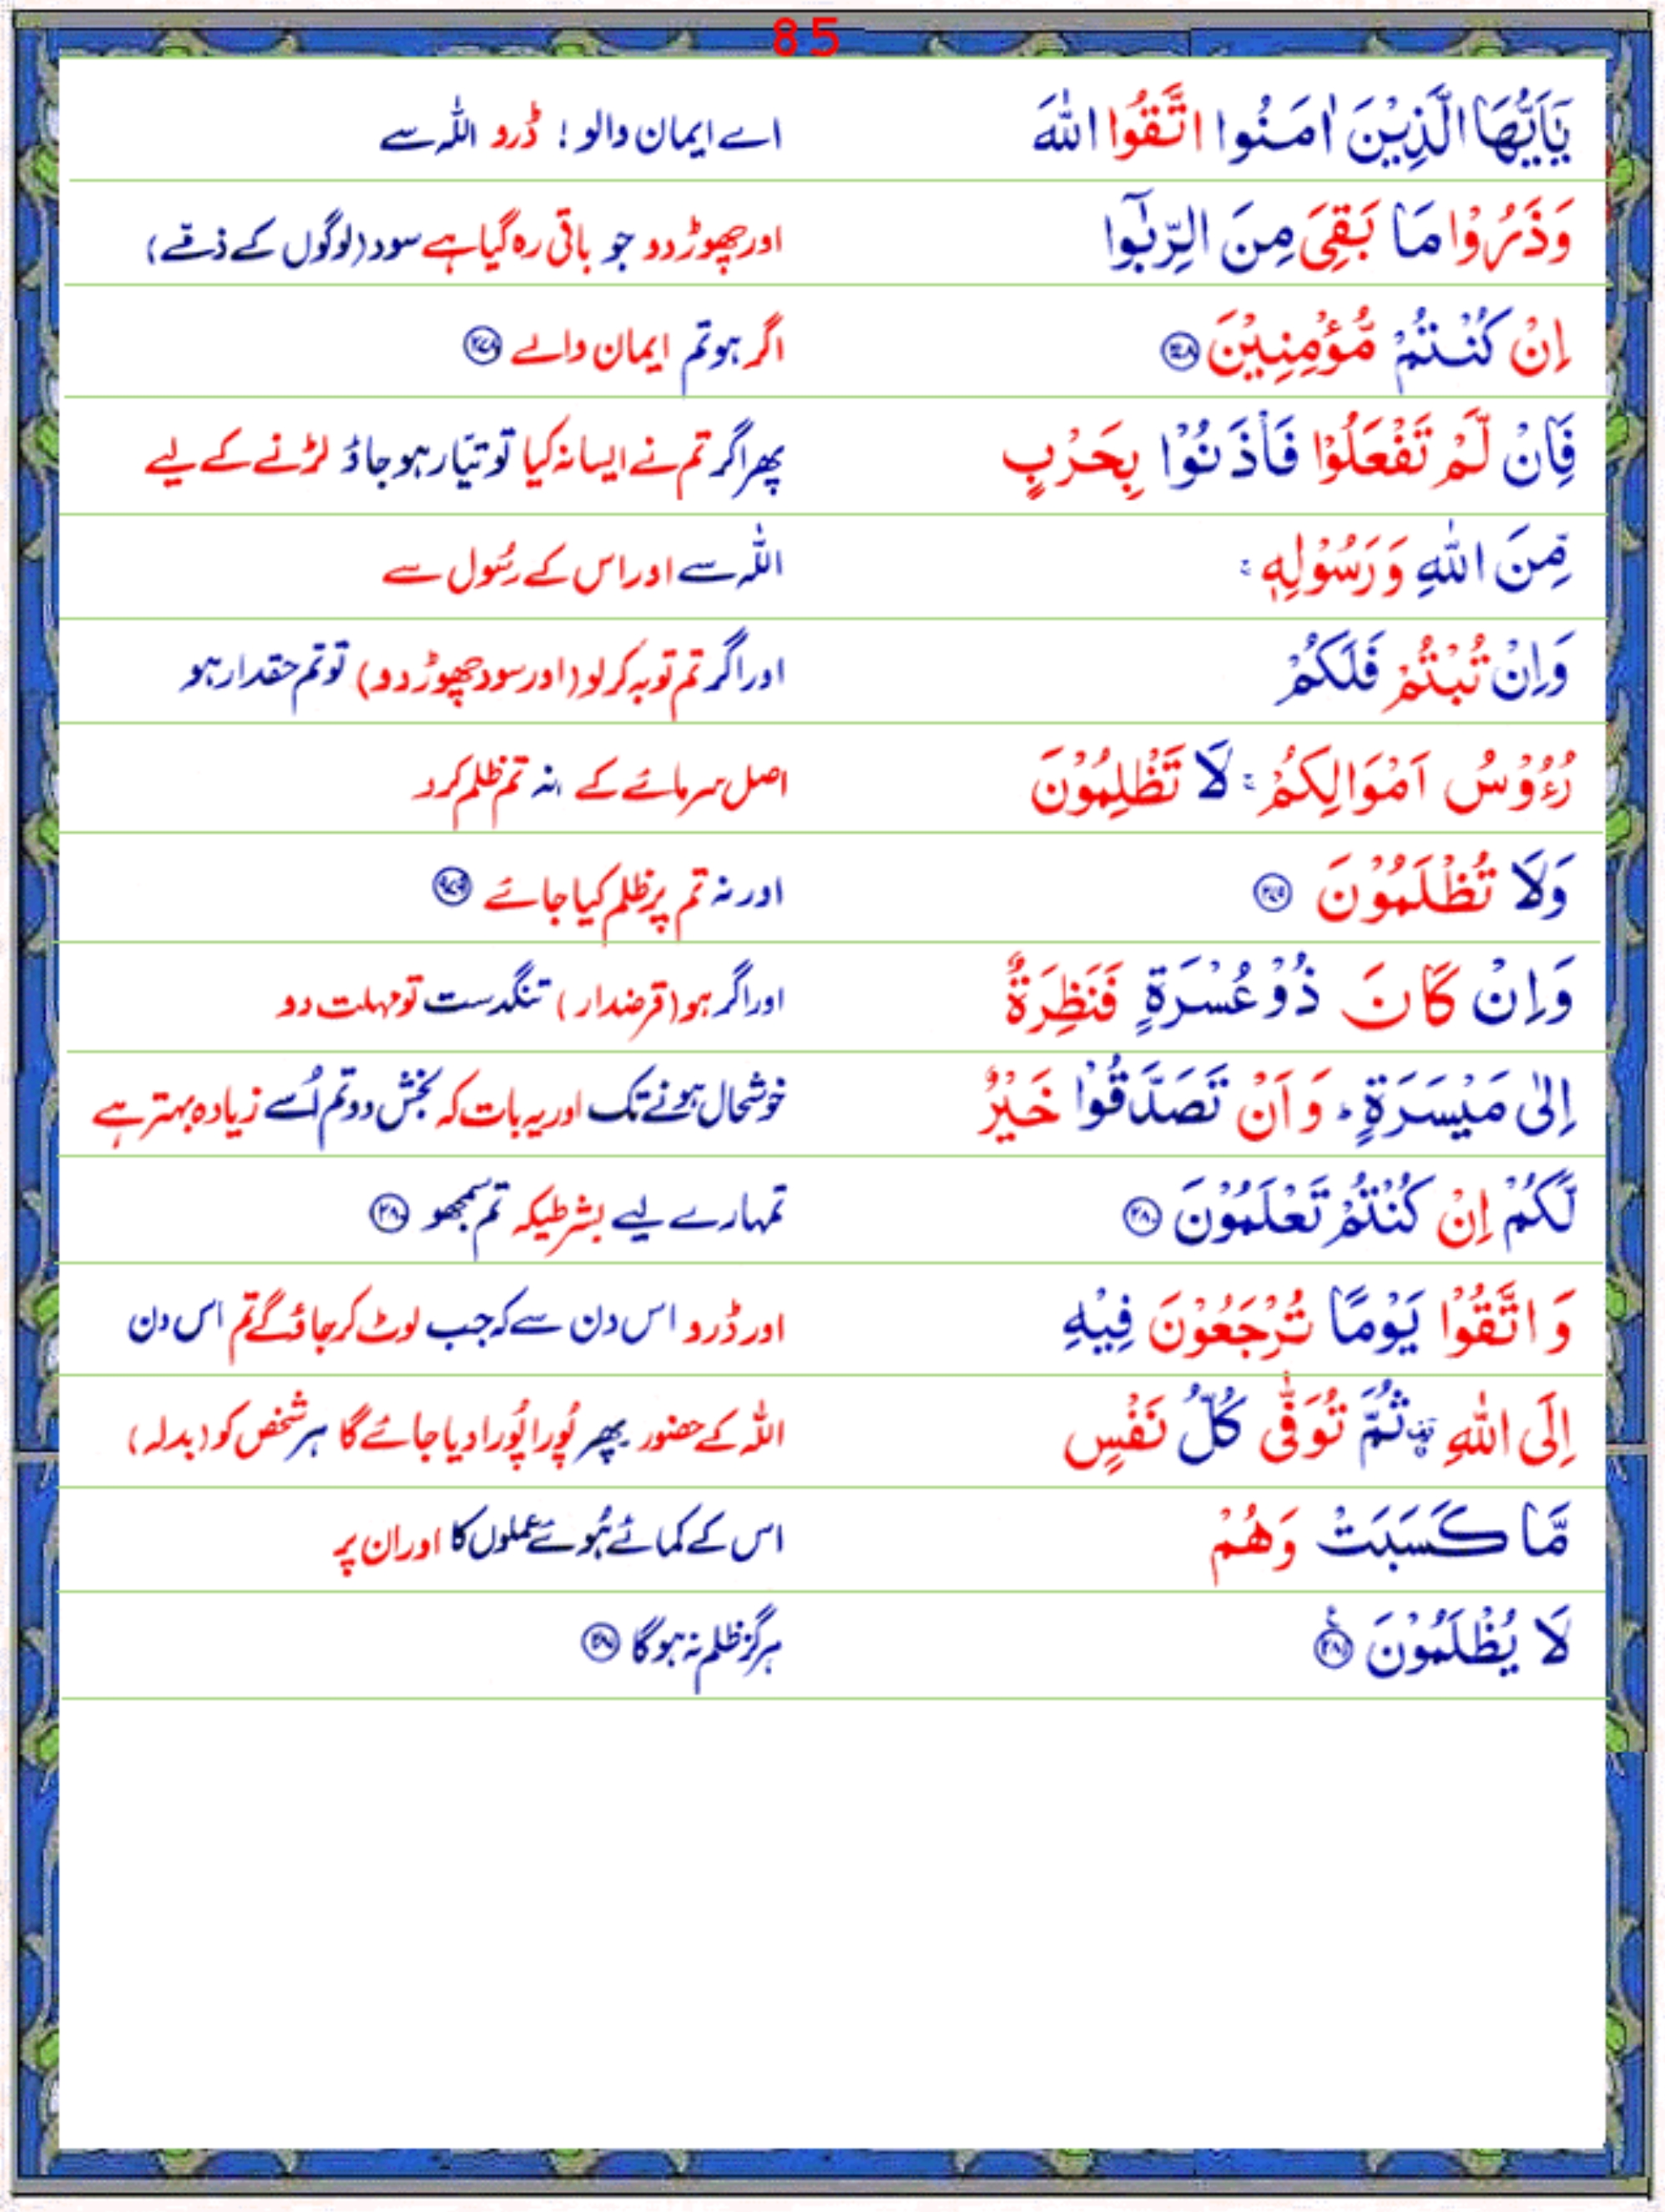 85
يٰٓاَيُّهَا الَّذِيْنَ اٰمَنُوا اتَّقُوا اللّٰهَ اے ایمان والو! ڈرو اللہ سے
وَذَرُوْا مَا بَقِىَ مِنَ الرِّبٰٓوا اور چھوڑ دو جو باقی رہ گیا ہے سود (لوگوں کے ذمّے)
اِنْ كُنْتُمْ مُّؤْمِنِيْنَ ﴿۲۷۸﴾ اگر ہو تم ایمان والے ﴿۲۷۸﴾
فَاِنْ لَّمْ تَفْعَلُوْا فَاْذَنُوْا بِحَرْبٍ پھر اگر تم نے ایسا نہ کیا تو تیّار ہو جاؤ لڑنے کے لیے
مِّنَ اللّٰهِ وَرَسُوْلِهٖ ۚ اللہ سے اور اس کے رسُول سے
وَاِنْ تُبْتُمْ فَلَكُمْ اور اگر تم توبہ کر لو (اور سود چھوڑ دو) تو تم حقدار ہو
رُءُوْسُ اَمْوَالِكُمْ ۚ لَا تَظْلِمُوْنَ اصل سرمائے کے نہ تم ظلم کرو
وَلَا تُظْلَمُوْنَ ﴿۲۷۹﴾ اور نہ تم پر ظلم کیا جائے ﴿۲۷۹﴾
وَاِنْ كَانَ ذُوْ عُسْرَةٍ فَنَظِرَةٌ اور اگر ہو (قرضدار) تنگدست تو مہلت دو
اِلٰى مَيْسَرَةٍ ؕ وَاَنْ تَصَدَّقُوْا خَيْرٌ خوشحال ہونے تک اور یہ بات کہ بخش دو تم اُسے زیادہ بہتر ہے
لَّكُمْ اِنْ كُنْتُمْ تَعْلَمُوْنَ ﴿۲۸۰﴾ تمہارے لیے بشرطیکہ تم سمجھو ﴿۲۸۰﴾
وَاتَّقُوْا يَوْمًا تُرْجَعُوْنَ فِيْهِ اور ڈرو اس دن سے کہ جب لوٹ کر جاؤ گے تم اس دن
اِلَى اللّٰهِ ثُمَّ تُوَفّٰى كُلُّ نَفْسٍ اللہ کے حضور پھر پُورا پُورا دیا جائے گا ہر شخص کو (بدلہ)
مَّا كَسَبَتْ وَهُمْ اس کے کمائے ہُوئے عملوں کا اور ان پر
لَا يُظْلَمُوْنَ ﴿۲۸۱﴾ ہرگز ظلم نہ ہوگا ﴿۲۸۱﴾